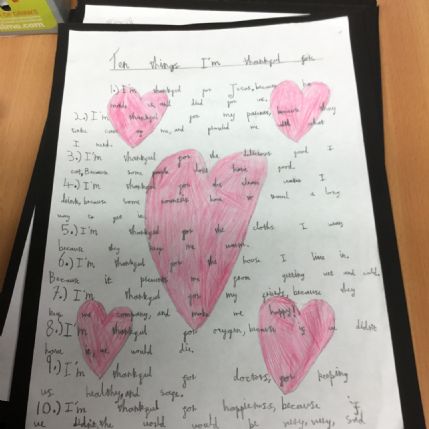 Ten things I'm thankful for
1.) I'm thankful for Jesus, because he
made us and died for us.
2.) I'm thankful for my parents, because they
take care of me, and provided me with what
I need.
3.) I'm thankful for the delicious food I
eat, Because some people don't have food.
4.) I'm thankful for the clean water I
drink, because some have to travel a long
way to get it.
5.) I'm thankful for the cloths I wear,
because they keep me warm.
6.) I'm thankful for the house I live in,
Because it prevents me from getting wet and cold.
7.) I'm thankful for my friends, because they
keep me company, and make me happy!
8.) I'm thankful for oxygen, because if we didn't
have it, we would die.
9.) I'm thankful for doctors, for keeping
us healthy, and safe.
10.) I'm thankful for happiness, because if
we didn't, the world would be very, very, sad